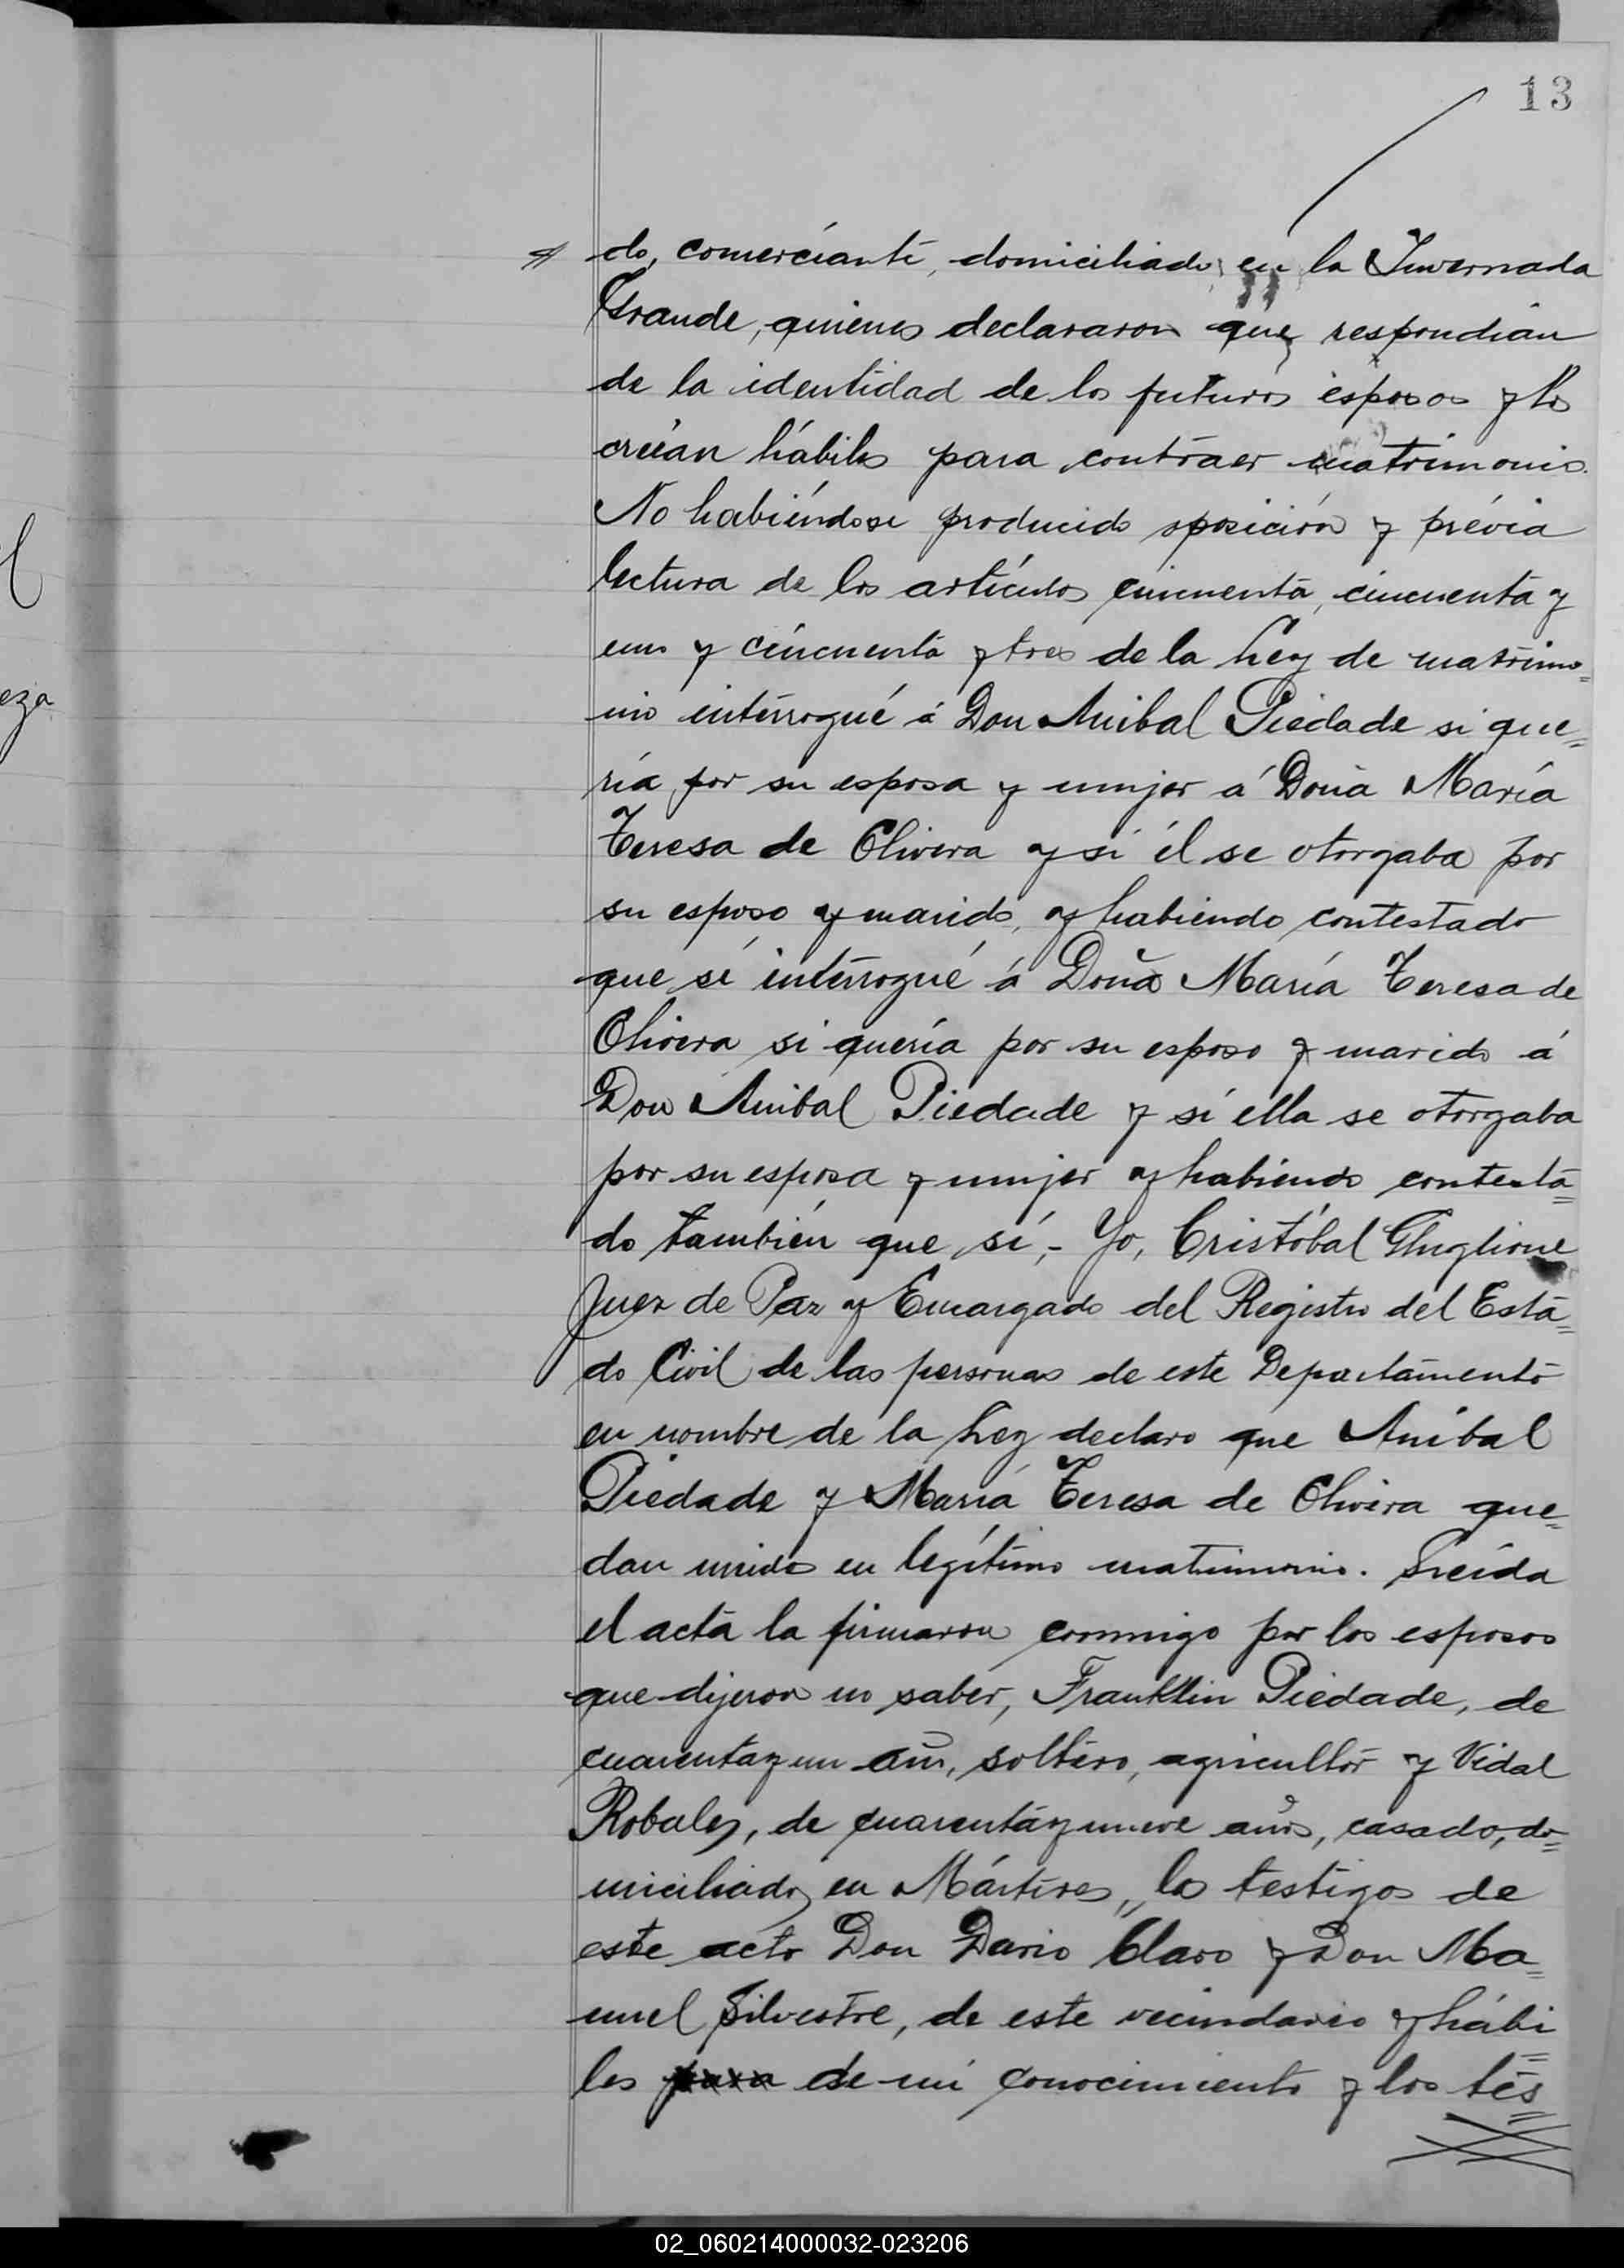 13
do, comerciante, domiciliado, en la Invernada
Grande, quienes declararon que respondían
de la identidad de los futuros esposos y los
creían hábiles para contraer matrimonio.
No habiéndose producido oposición y prévia
lectura de los artículos cincuenta, cincuenta y
uno y cincuenta y tres de la Ley de matrimo=
nio interrogué á Don Anibal Piedade si que=
ría por su esposa y mujer á Doña María
Teresa de Olivera y si él se otorgaba por
su esposo y marido, y habiendo contestado
que sí interrogué á Doña María Teresa de
Olivera si quería por su esposo y marido á
Don Anibal Piedade y si ella se otorgaba
por su esposa y mujer y habiendo contesta=
do también que sí,- Yo, Cristóbal Ghiglione
Juez de Paz y Encargado del Registro del Esta=
do Civil de las personas de este Departamento
en nombre de la Ley declaro que Anibal
Piedade y María Teresa de Olivera que=
dan unidos en legítimo matrimonio. Leída
el acta la firmaron conmigo por los esposos
que dijeron no saber, Franklin Piedade, de
cuarenta y un años, soltero, agricultor y Vidal
Robales, de cuarenta y nueve años, casado, do=
miciliados en Mártires, los testigos de
este acto Don Dario Claro y Don Ma=
nuel Silvestre, de este vecindario y hábi=
les para de mi conocimiento y los tes=
eza
02_060214000032-023206